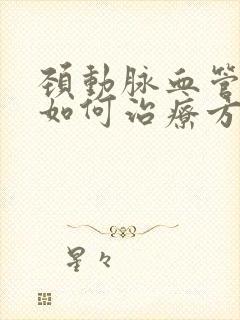 頚動脉血管
如何治療方
星々